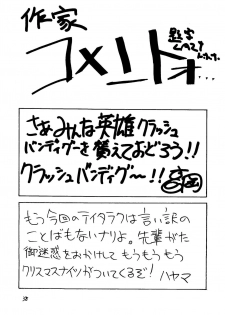 作家
コメント...
さあみんな英雄クラッシュ
バンディグーを賛えておどろう!!
クラッシュバンディグ〜!!
もう今回のテイタラクは言い訳の
ことばもないナリよ。先輩がた
御迷惑をおかけしてもうもうもう
クリスマスナイツがついてくるぞ!
ハヤマ